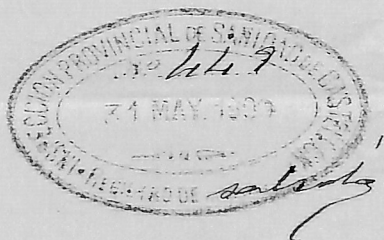 INSPECCIÓN PROVINCIAL DE SANIDAD DE CASTELLON
Nº 449
31 MAY. 1937
REGISTRO DE salida